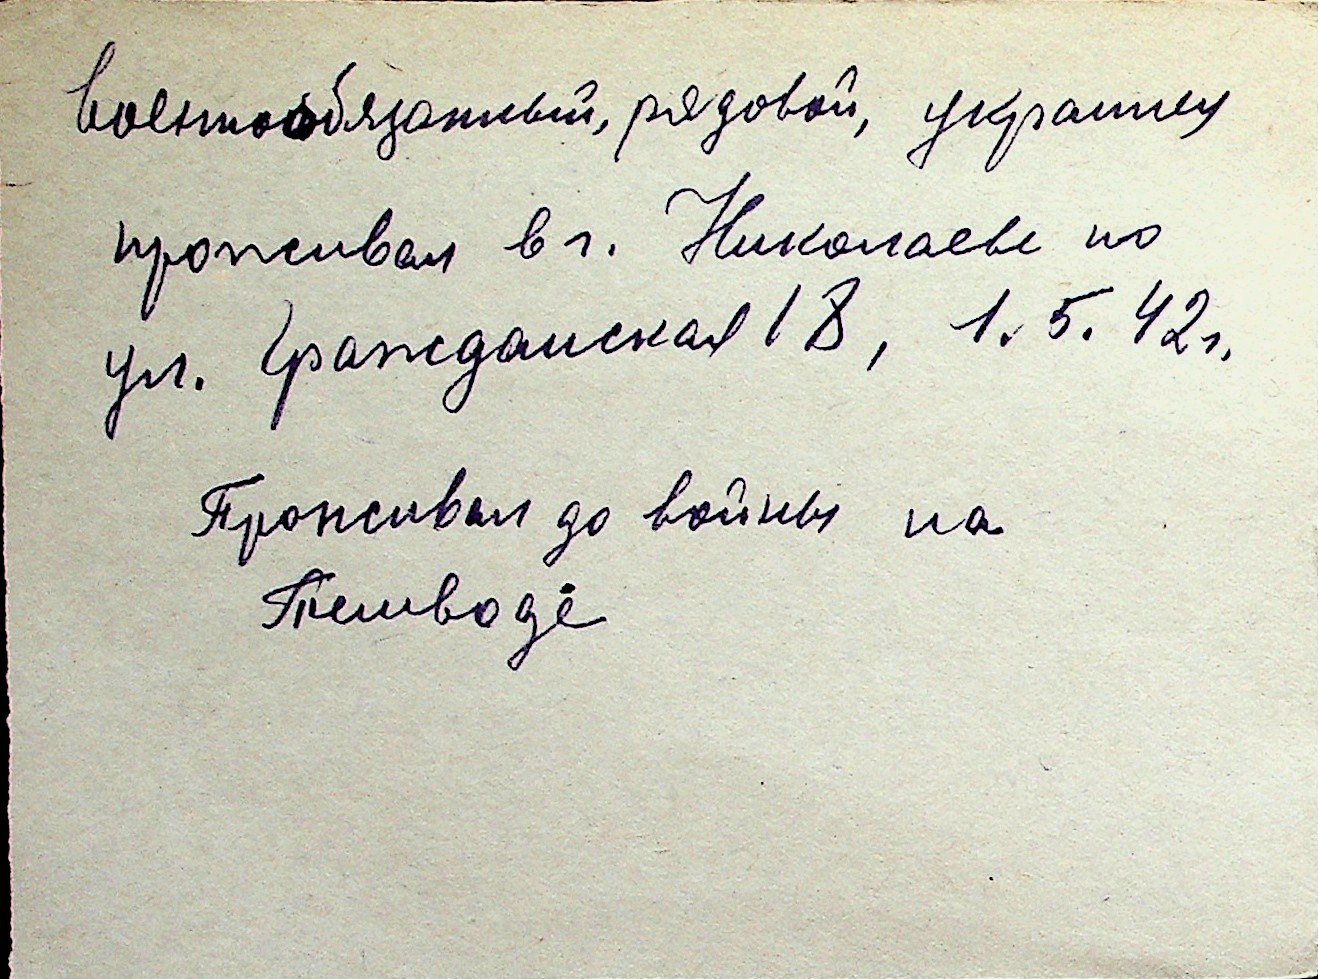 военнообязанный, рядовой, украинец
проживал в г. Николаеве по
ул. Гражданская 18, 1.5.42г.
Проживал до войны на
Темводе